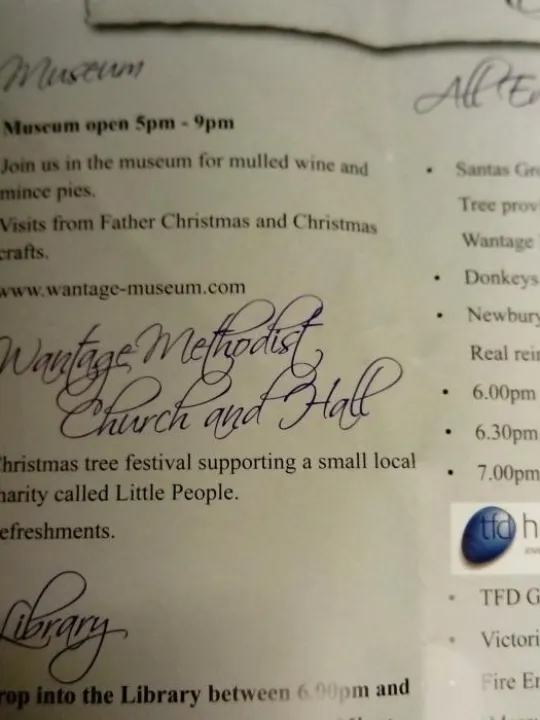 Museum
Museum open 5pm - 9pm
Join us in the museum for mulled wine and
mince pies.
Visits from Father Christmas and Christmas
crafts.
www.wantage-museum.com
Wantage Methodist
Church and Hall
Christmas tree festival supporting a small local
charity called Little People.
refreshments.
Library
rop into the Library between 6.00pm and
All En
• Santas Gr
Tree prov
Wantage
• Donkeys
• Newbury
Real rei
• 6.00pm
• 6.30pm
• 7.00pm
tfd h
• TFD G
• Victori
Fire En